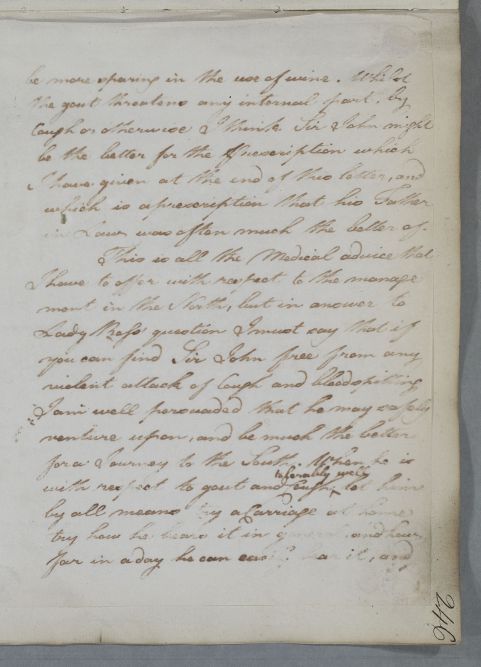 be more sparing in the use of wine. Whilst
the gout threatens any internal part, by
Cough or otherwise I think Sir John might
be the better for the Prescription which
I have given at the end of this letter, and
which is a prescription that his Father
in Law was often much the better of.
This is all the Medical advice that
I have to offer with respect to the manage
ment in the North, but in answer to
Lady question I must say that if
you can find Sir John free from any
violent attack of Cough and bloodspitting
I am well persuaded that he may safely
venture upon, and be much the better
for a Journey to the South. When he is
tolerably well
with respect to gout and Cough, let him
by all means try a Carriage at home
try how he bears it in general, and how
far in a day he can easily bear it, and
246